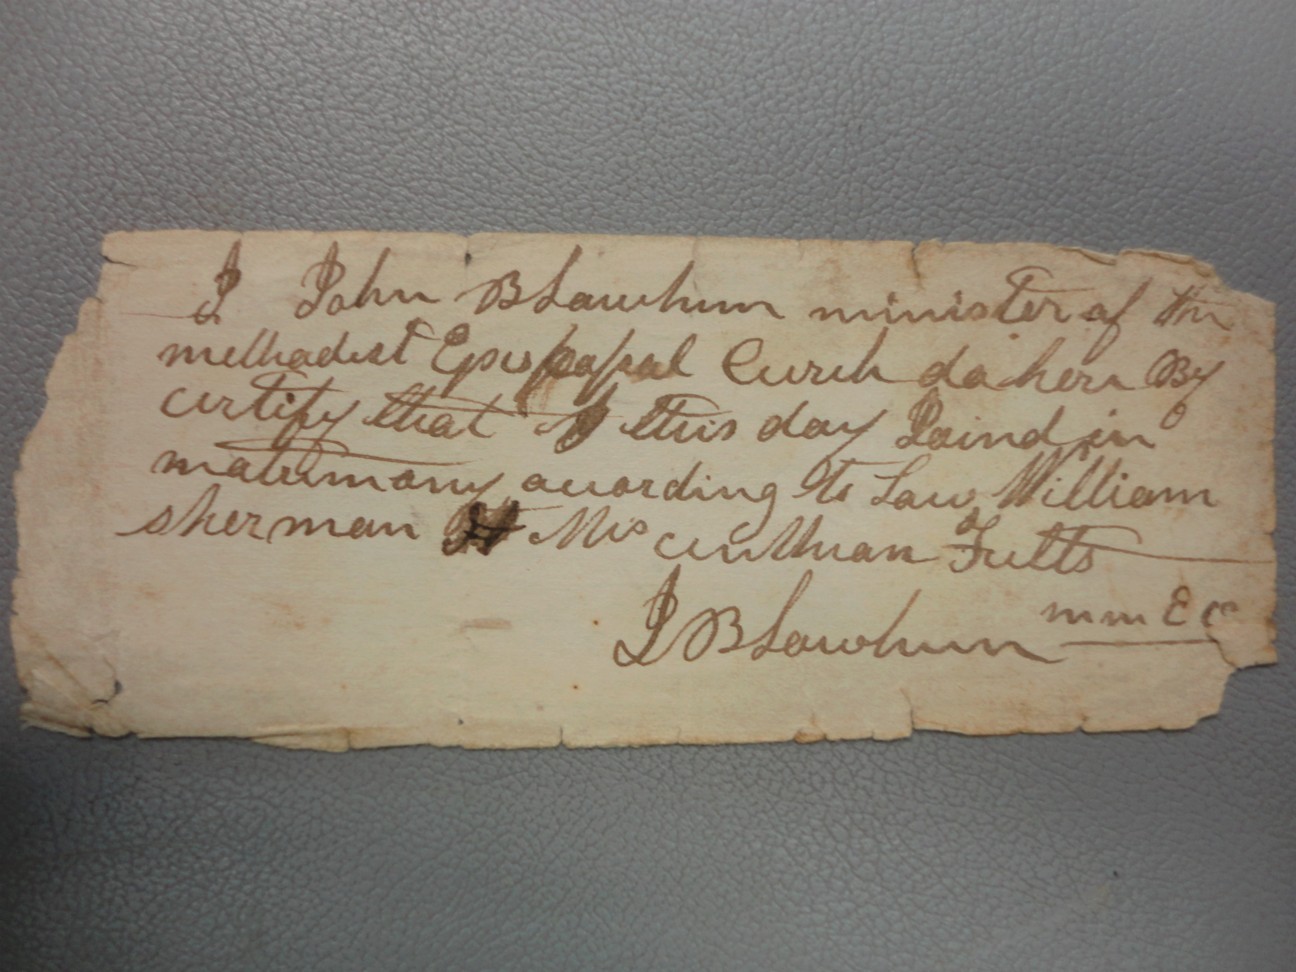 I John B Lawhum minister of the
methadist Epispopal Curch do here By
certify that I this day Joind in
matrimony acuording to Law William
sherman & Mis Fults
J B Lawhum mm E C